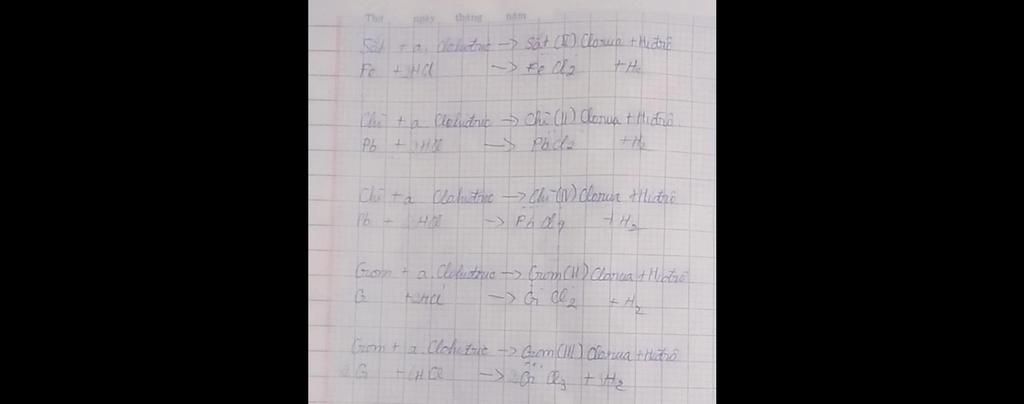 Thứ ngày tháng năm
Sắt + a. Clohiđric -> Sắt (II) Clorua + Hiđrô
Fe + 2HCl -> FeCl2 + H2
Chì + a Clohiđric -> Chì (II) Clorua + Hiđrô
Pb + HCl -> PbCl2 + H2
Chì + a Clohiđric -> Chì (IV) Clorua + Hiđrô
Pb + HCl -> PbCl4 + H2
Crom + a. Clohiđric -> Crom (II) Clorua + Hiđrô
Cr + 2HCl -> CrCl2 + H2
Crom + a. Clohiđric -> Crom (III) Clorua + Hiđrô
Cr + HCl -> CrCl3 + H2